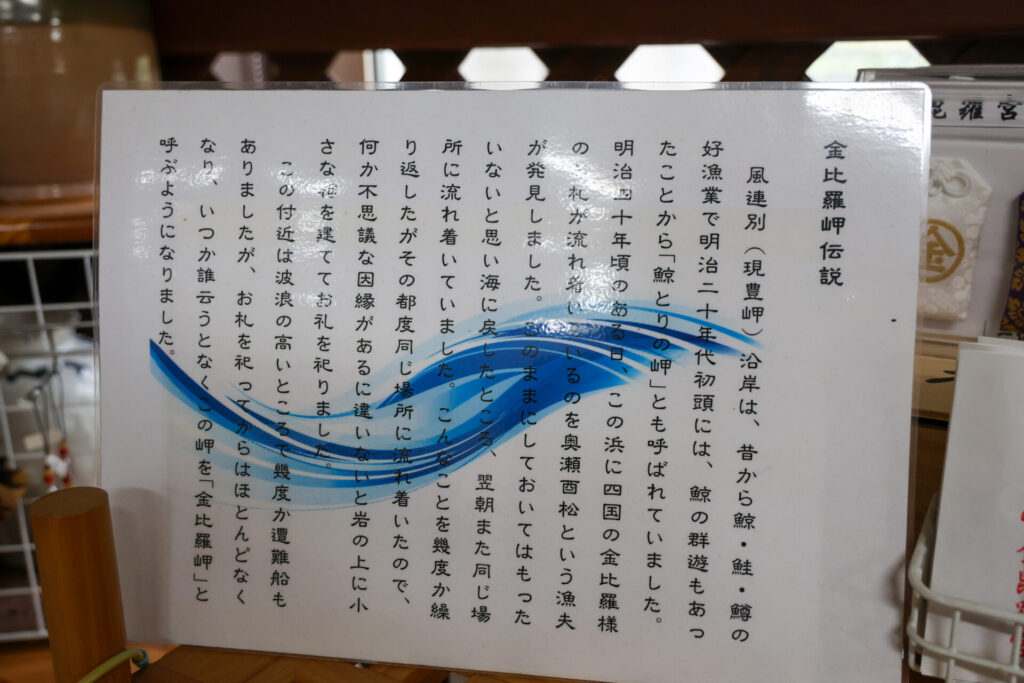 金比羅岬伝説
風連別（現豊岬）沿岸は、昔から鯨・鮭・鱒の
好漁業で明治二十年代初頭には、鯨の群遊もあっ
たことから「鯨とりの岬」とも呼ばれていました。
明治四十年頃のある日、この浜に四国の金比羅様
の札が流れ着いているのを奥瀬酉松という漁夫
が発見しました。このままにしておいてはもった
いないと思い海に戻したところ、翌朝また同じ場
所に流れ着いていました。こんなことを幾度か繰
り返したがその都度同じ場所に流れ着いたので、
何か不思議な因縁があるに違いないと岩の上に小
さな を建ててお礼を祀りました。
この付近は波浪の高いところで幾度か遭難船も
ありましたが、お札を祀ってからはほとんどなく
なり、いつか誰云うとなくこの岬を「金比羅岬」と
呼ぶようになりました。
羅宮
金